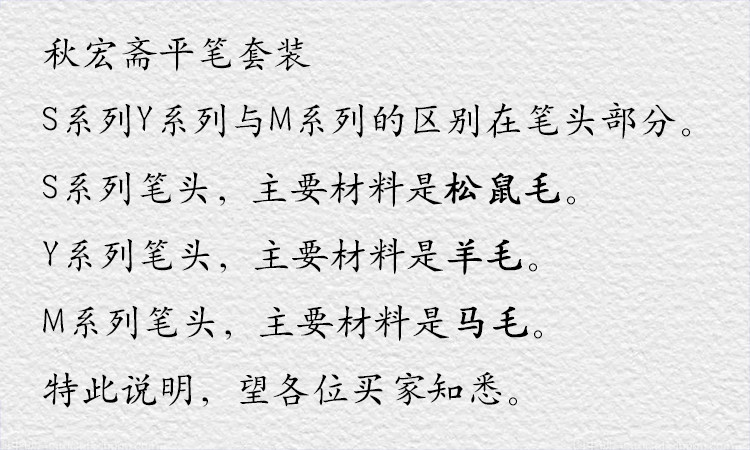 秋宏斋平笔套装
S系列Y系列与M系列的区别在笔头部分。
S系列笔头，主要材料是松鼠毛。
Y系列笔头，主要材料是羊毛。
M系列笔头，主要材料是马毛。
特此说明，望各位买家知悉。